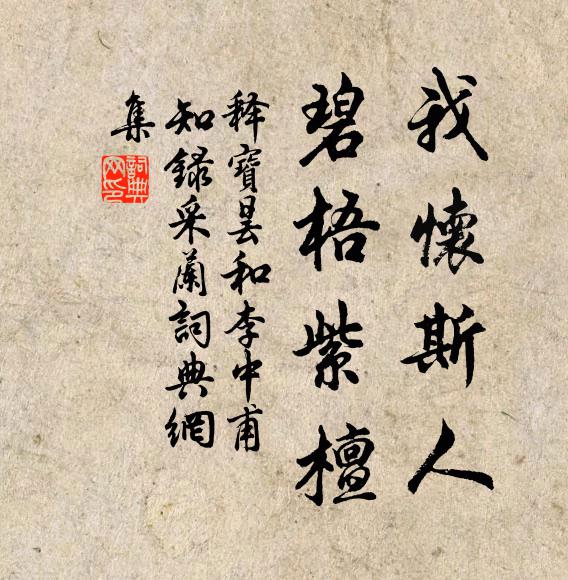 我懷斯人
碧梧紫檀
释寶昙和李中甫
知録采蘭詞典網
集
詞典
网印